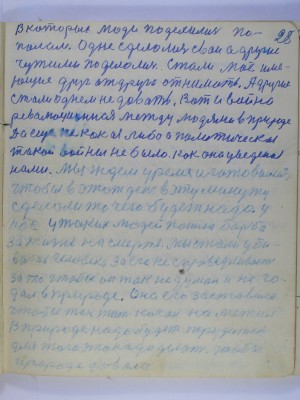 28
в которых люди поделились по-
полам. Одне сделолись свои а другие
чужими поделолись. Стали моё име-
нующие друг от друга отнимать. А другие
стали однем не довать, Вот и война
революционная между людями в природе
Да еще не какая либо а политическая
такой войны не было. как она уведена
нами. Мы ждем уремя и готовимся,
чтобы в этот ден в эту минуту
сделоли то чего будет надо. у
нас у таких людей пошла барба
за жизне на смерте. мы стали уби-
вать человека за его не справедливость
за то чтобы он так не думал и не го-
дал в природе. Она его заставила
чтобы так жит как на
В природе надо будет трудится
для того это надо делать. чтобы
природе